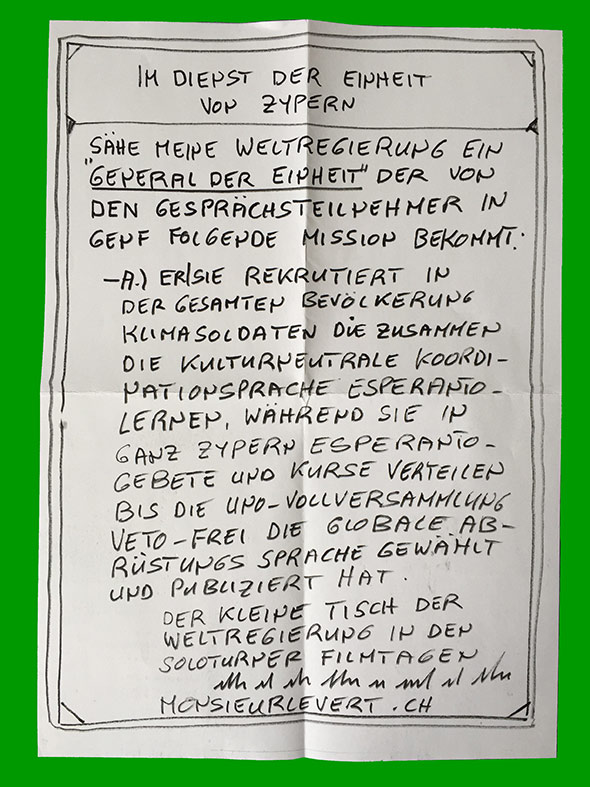 IM DIENST DER EINHEIT
VON ZYPERN
SÄHE MEINE WELTREGIERUNG EIN
"GENERAL DER EINHEIT" DER VON
DEN GESPRÄCHSTEILNEHMER IN
GENF FOLGENDE MISSION BEKOMMT:
–A.) ER/SIE REKRUTIERT IN
DER GESAMTEN BEVÖLKERUNG
KLIMASOLDATEN DIE ZUSAMMEN
DIE KULTURNEUTRALE KOORDI-
NATIONSPRACHE ESPERANTO-
LERNEN, WÄHREND SIE IN
GANZ ZYPERN ESPERANTO-
GEBETE UND KURSE VERTEILEN
BIS DIE UNO-VOLLVERSAMMLUNG
VETO-FREI DIE GLOBALE AB-
RÜSTUNGS SPRACHE GEWÄHLT
UND PUBLIZIERT HAT.
DER KLEINE TISCH DER
WELTREGIERUNG IN DEN
SOLOTURNER FILMTAGEN
MONSIEURLEVERT.CH